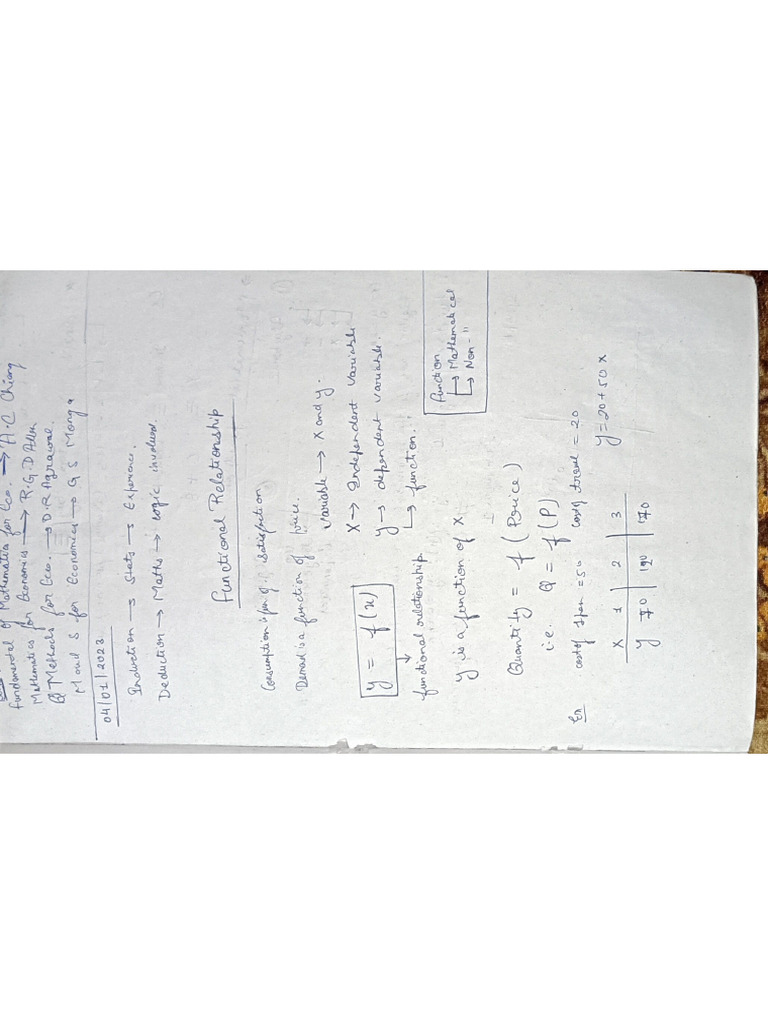 Fundamental of Mathematics for Eco. → A.C Chiang
Mathematics for Economics → R.G.D Allen
Q Methods for Eco. → D.R Agrawal
M and S for Economics → G S Monga
04/01/2023
Induction → Stats → Experience.
Deduction → Maths → Logic involved
Functional Relationship
Consumption is fn of satisfaction
Demand is a function of price.
variable → X and y.
y = f(x)
X → Independent variable
y → dependent variable.
↳ function.
functional relationship
Function
↳ Mathematical
↳ Non-"
y is a function of x
Quantity = f (Price)
i.e. Q = f (P)
Ex
cost of 1 pen = 50 cost of travel = 20
X 1 2 3
y 70 120 170
y = 20 + 50 x